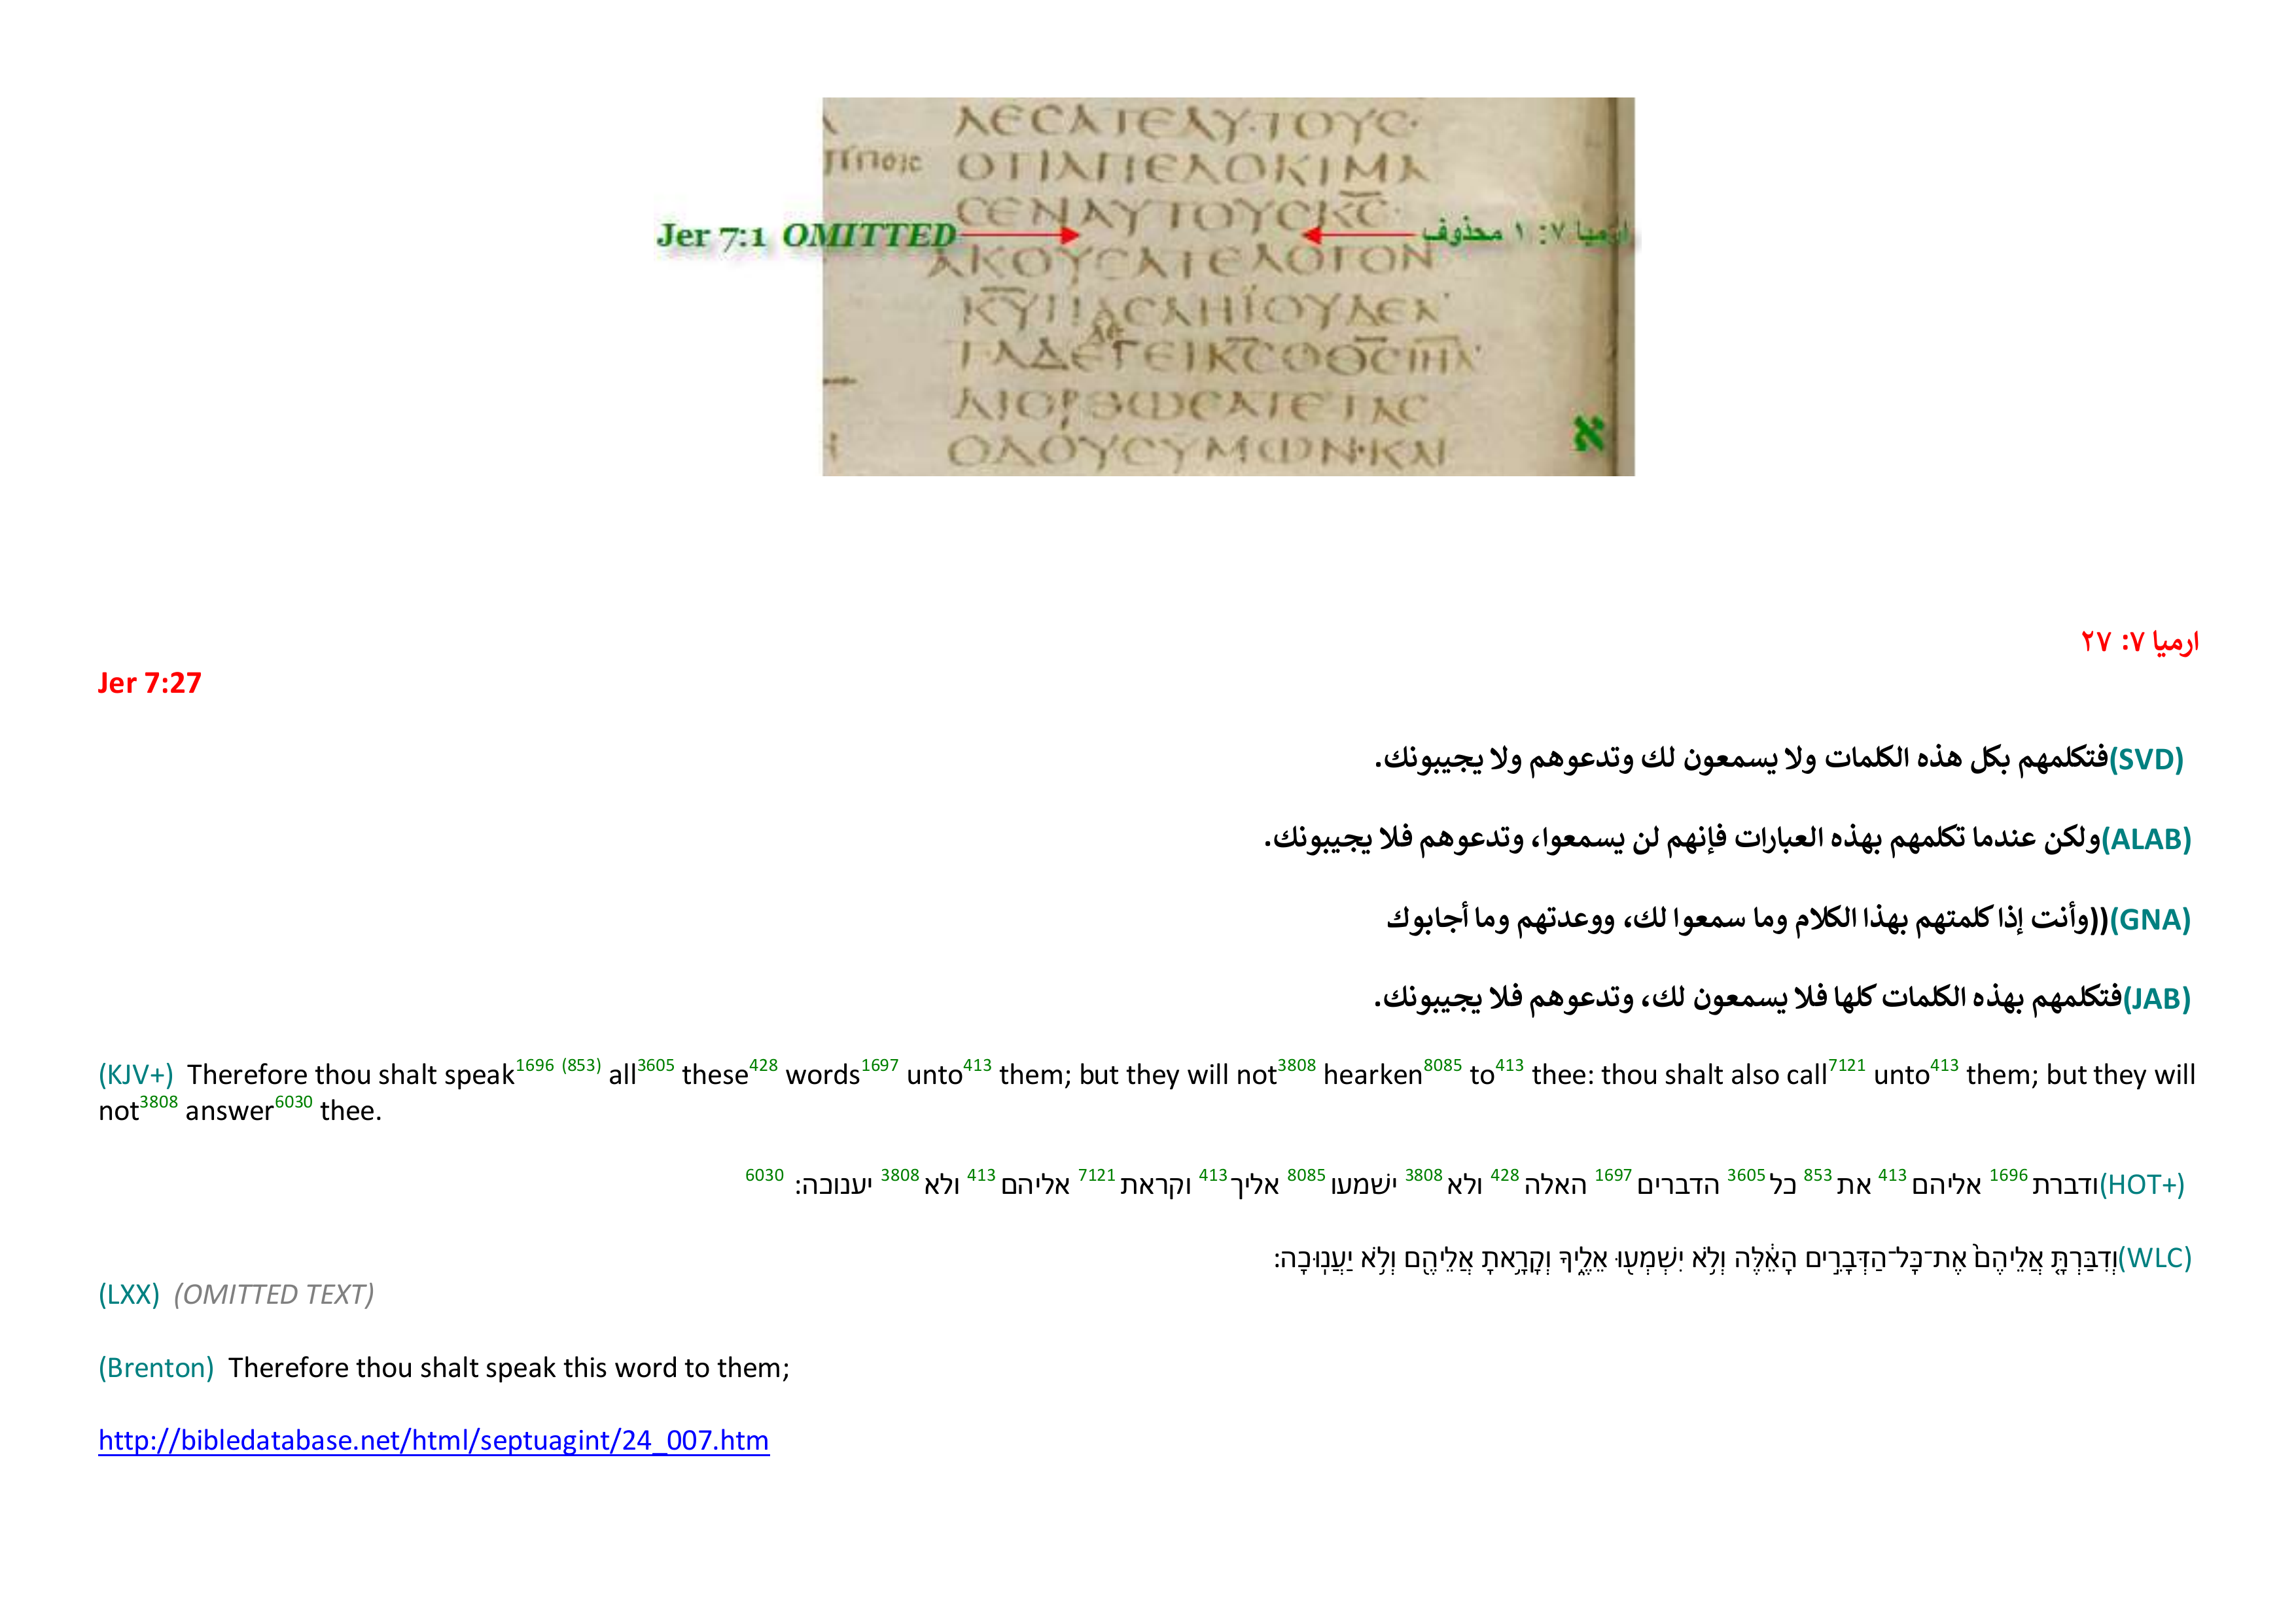 ΛΕϹΑΤΕΑΥΤΟΥϹ·
ΟΤΙΑΠΕΔΟΚΙΜΑ
ϹΕΝΑΥΤΟΥϹΚϹ·
Jer 7:1 OMITTED
ارميا ٧: ١ محذوف
ΑΚΟΥϹΑΤΕΛΟΓΟΝ
ΚΥΠΑϹΑΗΪΟΥΔΕΑ
ΤΑΔΕΛΕΓΕΙΚϹΟΘϹΙΗΛ
ΔΙΟΡΘΩϹΑΤΕΤΑϹ
ΟΔΟΥϹΥΜΩΝ·ΚΑΙ
א
ارميا ٧: ٢٧
Jer 7:27
(SVD)فتكلمهم بكل هذه الكلمات ولا يسمعون لك وتدعوهم ولا يجيبونك.
(ALAB)ولكن عندما تكلمهم بهذه العبارات فإنهم لن يسمعوا، وتدعوهم فلا يجيبونك.
(GNA)((وأنت إذا كلمتهم بهذا الكلام وما سمعوا لك، ووعدتهم وما أجابوك
(JAB)فتكلمهم بهذه الكلمات كلها فلا يسمعون لك، وتدعوهم فلا يجيبونك.
(KJV+) Therefore thou shalt speak1696 (853) all3605 these428 words1697 unto413 them; but they will not3808 hearken8085 to413 thee: thou shalt also call7121 unto413 them; but they will
not3808 answer6030 thee.
(HOT+)ודברת1696 אליהם413 את853 כל3605 הדברים1697 האלה428 ולא3808 ישׁמעו8085 אליך413 וקראת7121 אליהם413 ולא3808 יענוכה׃6030
(WLC)וְדִבַּרְתָּ֤ אֲלֵיהֶם֙ אֶת־כָּל־הַדְּבָרִ֣ים הָאֵ֔לֶּה וְלֹ֥א יִשְׁמְע֖וּ אֵלֶ֑יךָ וְקָרָ֥אתָ אֲלֵיהֶ֖ם וְלֹ֥א יַעֲנֽוּכָה׃
(LXX) (OMITTED TEXT)
(Brenton) Therefore thou shalt speak this word to them;
http://bibledatabase.net/html/septuagint/24_007.htm